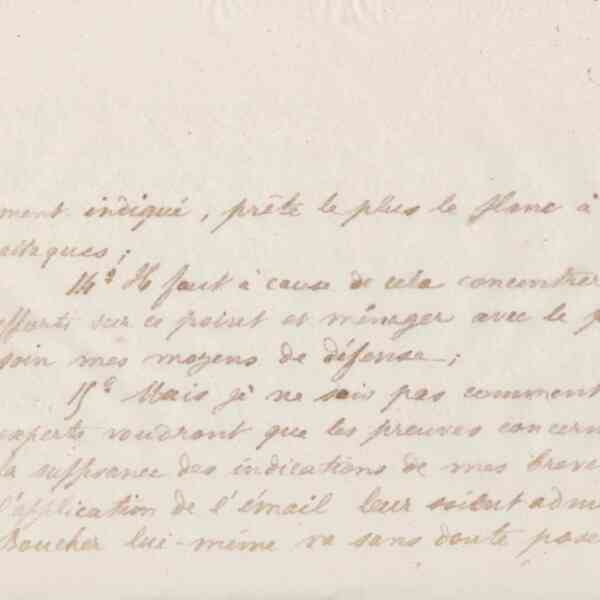 ment indiqué, prête le plus le flanc à
attaques;
14° Il faut à cause de cela concentrer
efforts sur ce point et ménager avec le p
soin mes moyens de défense;
15° Mais je ne sais pas comment
experts voudront que les preuves concern
la suffisance des indications de mes breve
l'application de l'émail leur soient adm
Boucher lui-même va sans doute pose